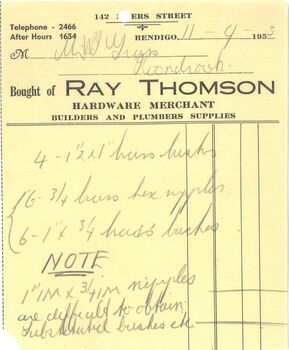 142 MYERS STREET
Telephone - 2466
After Hours 1634
BENDIGO, 11 - 9 - 1953
M
Koondrook
Bought of RAY THOMSON
HARDWARE MERCHANT
BUILDERS AND PLUMBERS SUPPLIES
4 - 1½ x 1" brass bushes
6 - 3/4 brass hex nipples
6 - 1" x 3/4 brass bushes
NOTE
1" IM x 3/4 IM nipples
are difficult to obtain
substituted bushes etc